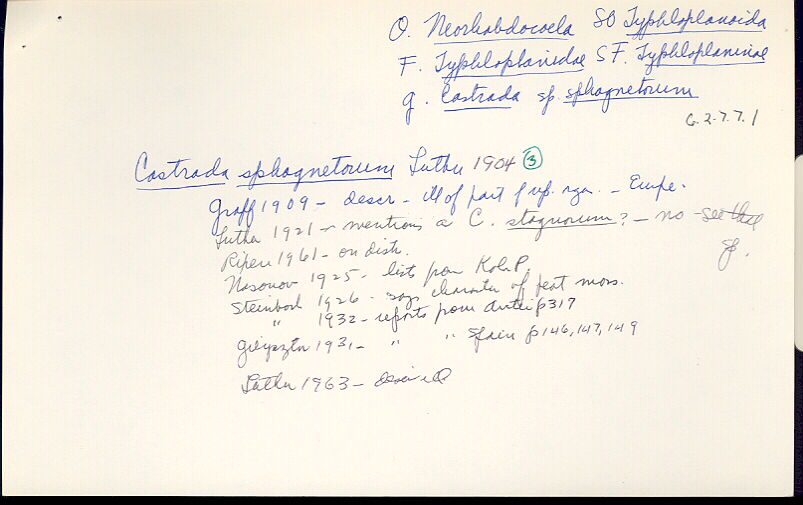 O. Neorhabdocoela SO Typhloplanoida
F. Typhloplanidae SF. Typhloplaninae
g. Castrada sp. sphagnetorum
6.2.7.7.1
Castrada sphagnetorum Luther 1904 3
Graff 1909 - descr - ill of part of rep. rgn. - Europe.
Luther 1921 - mentions a C. stagnorum? - no - see that
sp.
1961 - on distr.
Nasonov 1925 - lists from Kola P.
Steinbock 1926 - says character of peat moss.
" 1932 - reports from p317
Gieysztor 1931 - " " Spain p146, 147, 149
Luther 1963 - descr ill